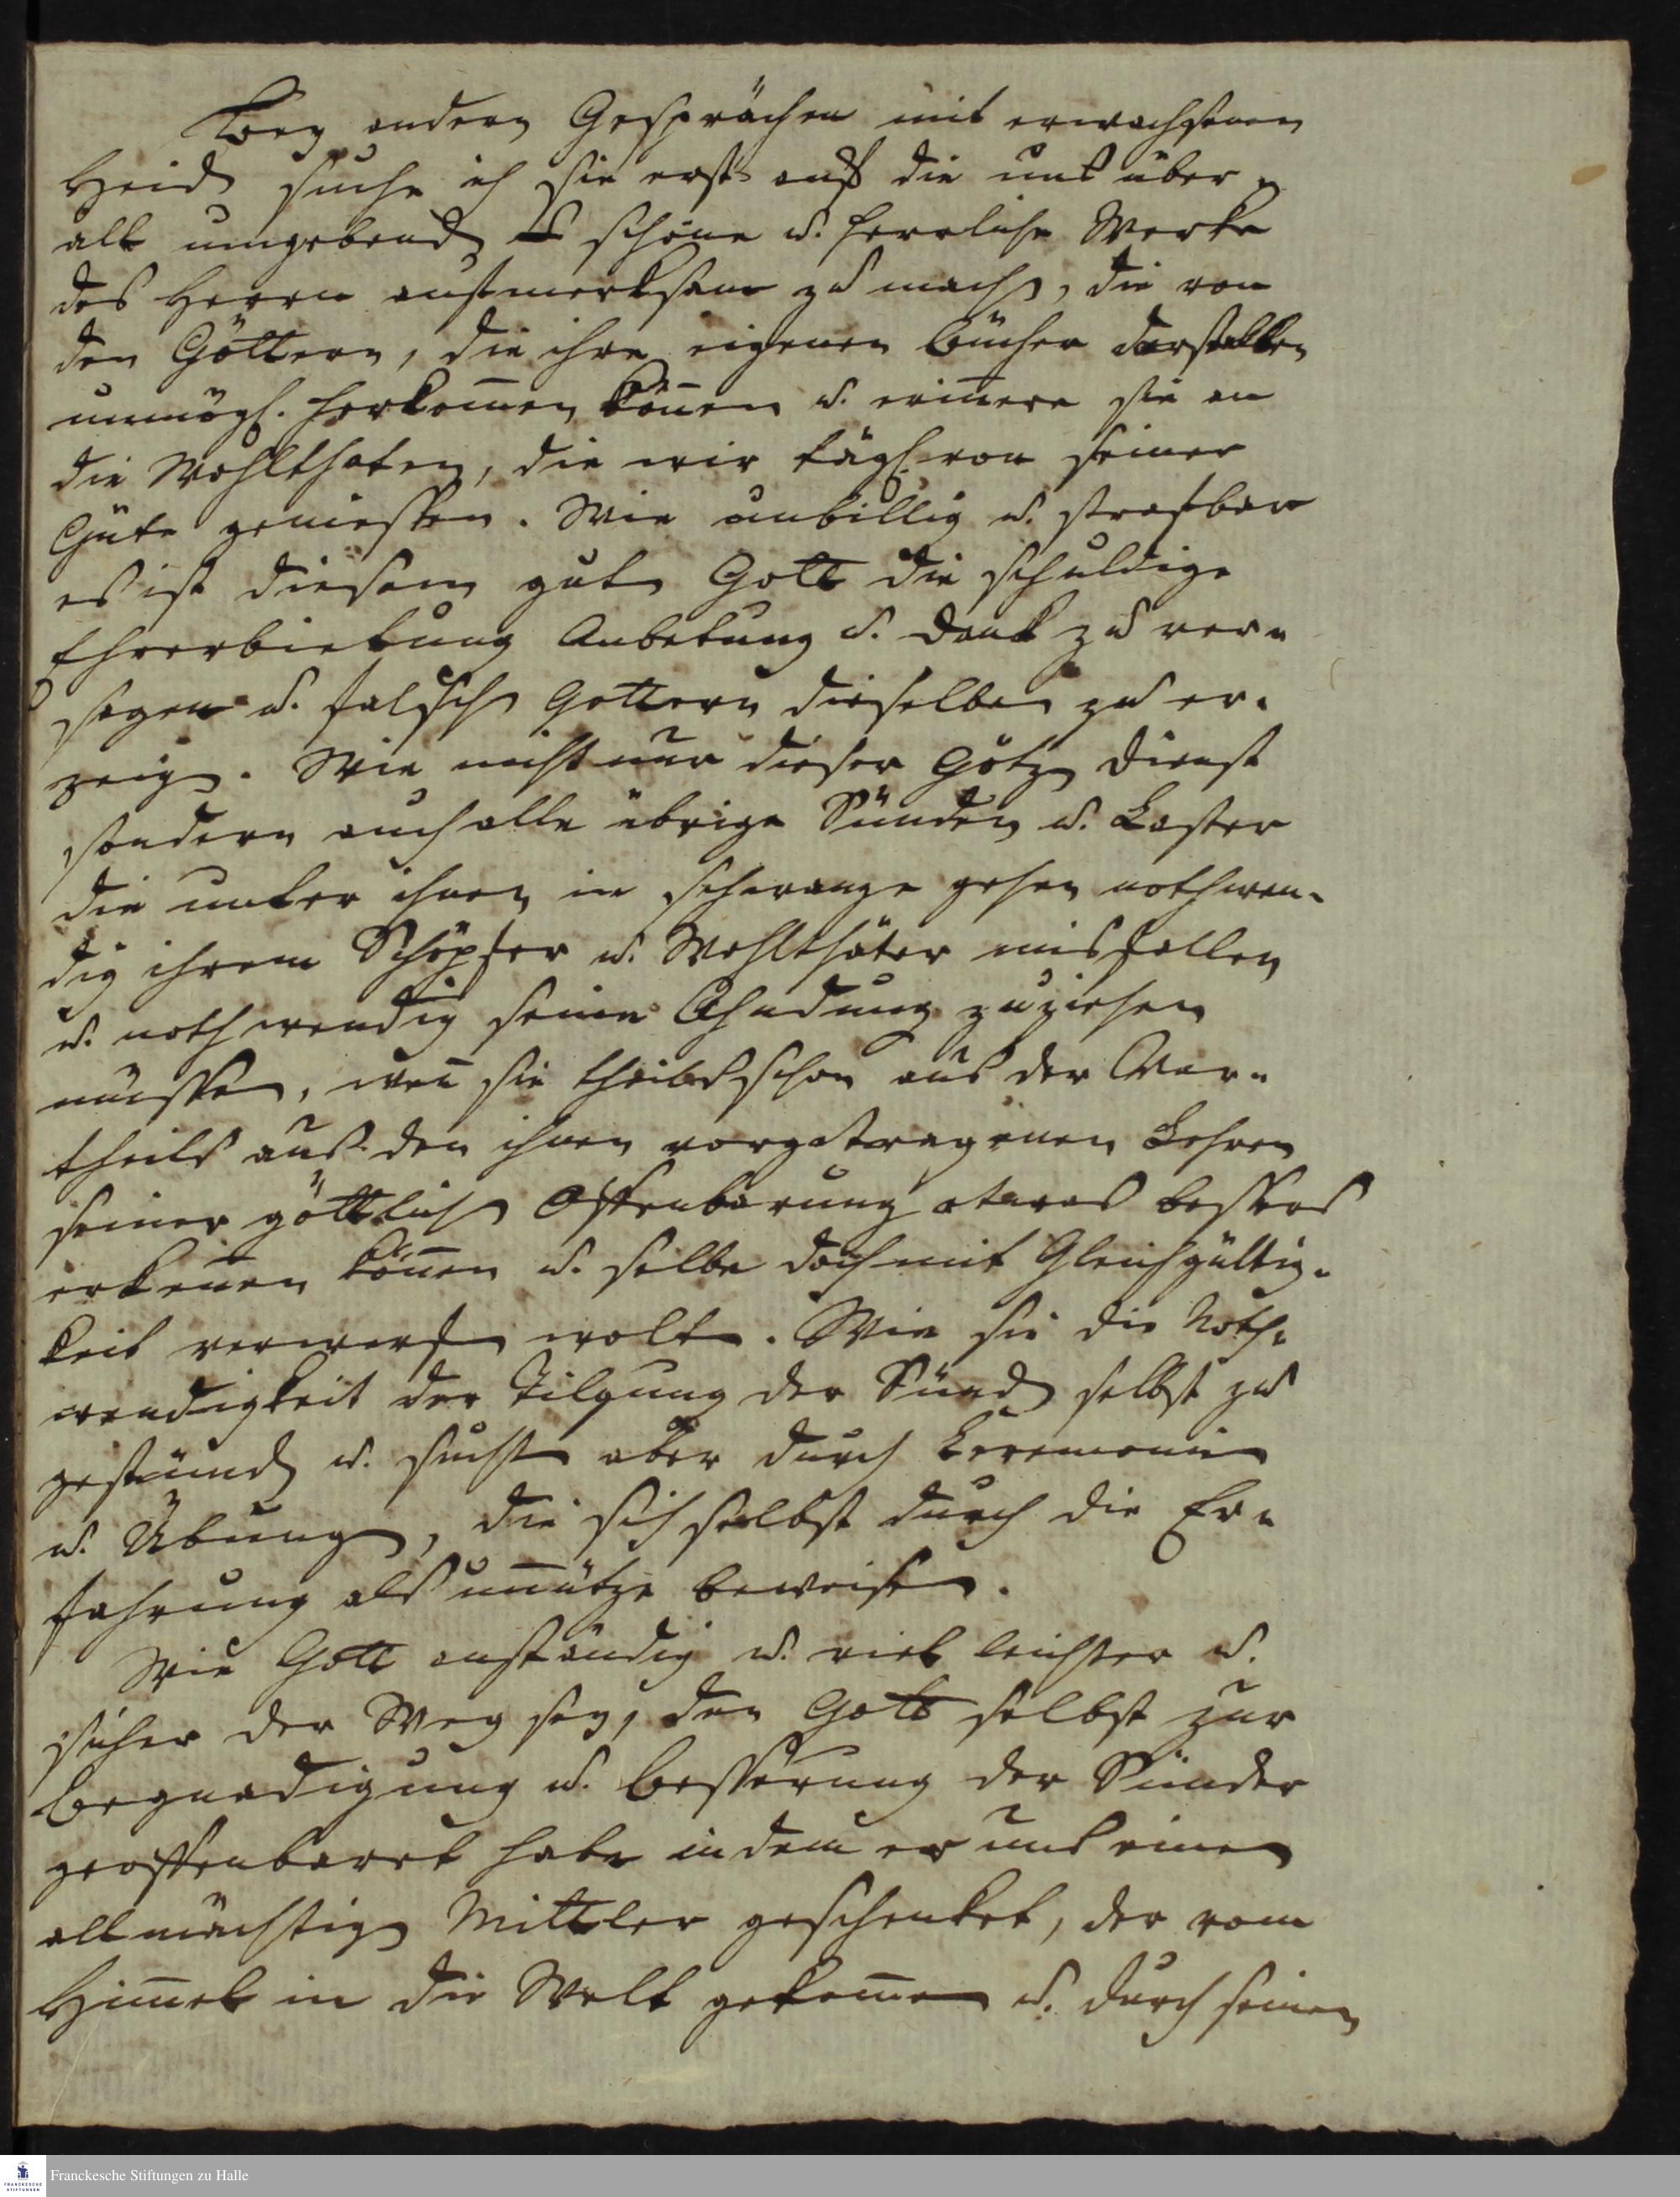 Bey andern Gesprächen mit erwachsenen
Heiden suche ich sie erst auf die uns über-
all umgebenden schöne u. herrliche Werke
des Herrn aufmerksam zu machen, die von
den Göttern, die ihre eigenen Bücher darstellen
unmögl. herkom̄en kön̄en u. erin̄ere sie an
die Wohlthaten, die wir tägl. von seiner
Güte geniessen. Wie unbillig u. strafbar
es ist diesem guten Gott die schuldige
Ehrerbietung Anbetung u. Dank zu ver-
sagen u. falschen Gottern dieselben zu er-
zeigen. Wie nicht nur dieser Götzen dienst
sondern auch alle übrige Sünden u. Laster
die unter ihnen in schwange gehen nothwen-
dig ihrem Schöpfer u. Wohlthäter misfallen
u. nothwendig seine Ahndung zuziehen
müssen, wen̄ sie theils schon aus der
theils aus den ihnen vorgetragenen Lehren
seiner göttlichen Offenbarung etwas bessers
erken̄en kön̄en u. selbe doch mit Gleichgültig-
keit verwerfen wolten. Wie sie die Noth-
wendigkeit der Tilgung der Sünden selbst zu
gestünden u. suchten aber durch Ceremonien
u. Übungen, die sich selbst durch die Er-
fahrung als un̄ütze beweisen.
Wie Gott anständig u. viel leichter u.
sicher der Weg sey, den Gott selbst zur
Begnadigung u. Besserung der Sünder
geoffenbaret habe indem er uns einen
allmächtigen Mittler geschenket, der vom
Him̄el in die Welt gekom̄en u. durch seinen
Franckesche Stiftungen zu Halle